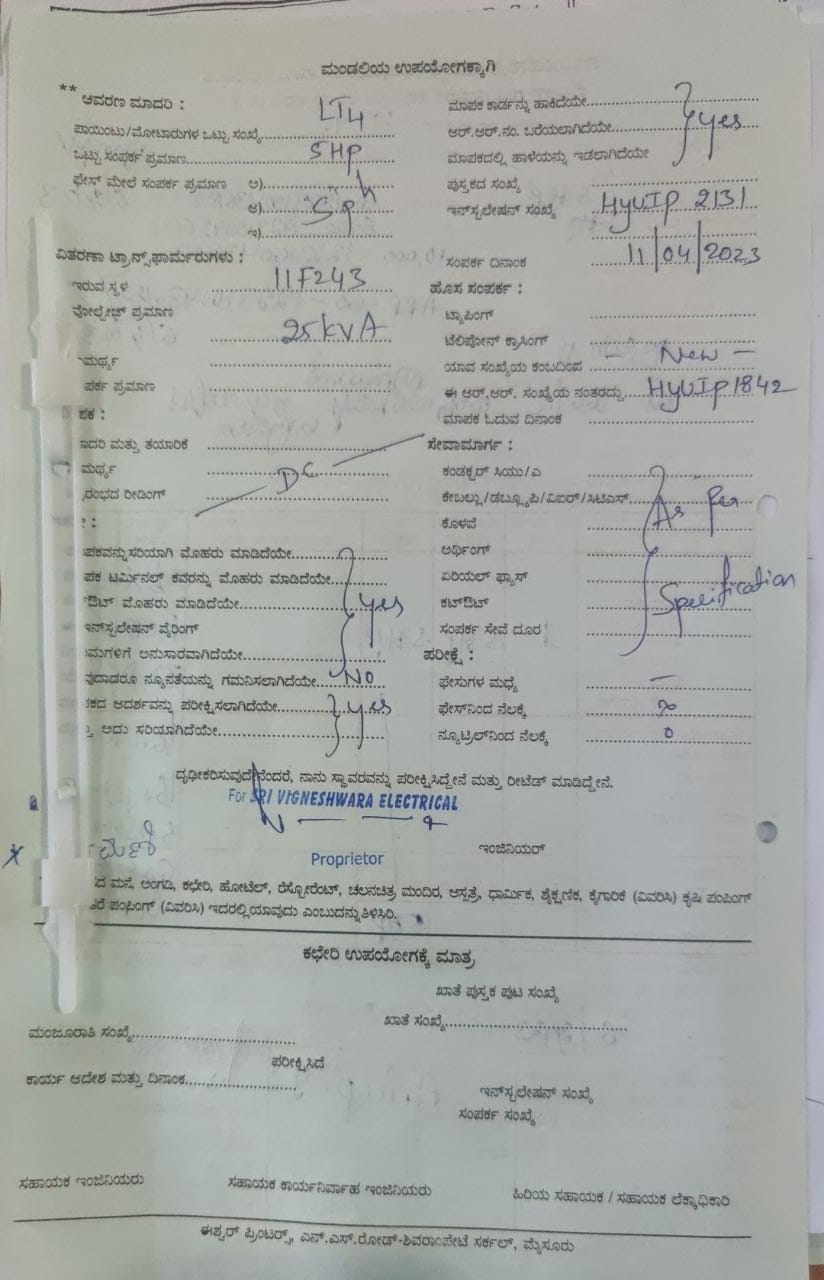 ಮಂಡಲಿಯ ಉಪಯೋಗಕ್ಕಾಗಿ
** ಆವರಣ ಮಾದರಿ : LT4
ಪಾಯಿಂಟು/ಮೋಟಾರುಗಳ ಒಟ್ಟು ಸಂಖ್ಯೆ
ಒಟ್ಟು ಸಂಪರ್ಕ ಪ್ರಮಾಣ 5HP
ಫೇಸ್ ಮೇಲೆ ಸಂಪರ್ಕ ಪ್ರಮಾಣ ಅ)
ಆ)
ಇ)
ವಿತರಣಾ ಟ್ರಾನ್ಸ್‌ಫಾರ್ಮರುಗಳು :
ಇರುವ ಸ್ಥಳ 11F243
ವೋಲ್ಟೇಜ್ ಪ್ರಮಾಣ
25kVA
ಮರ್ಥ್ಯ
ಪರ್ಕ ಪ್ರಮಾಣ
ಪಕ :
ಾದರಿ ಮತ್ತು ತಯಾರಿಕೆ
ಮರ್ಥ್ಯ DC
ರಂಭದ ರೀಡಿಂಗ್
ಪಕವನ್ನು ಸರಿಯಾಗಿ ಮೊಹರು ಮಾಡಿದೆಯೇ
ಪಕ ಟರ್ಮಿನಲ್ ಕವರನ್ನು ಮೊಹರು ಮಾಡಿದೆಯೇ
ಔಟ್ ಮೊಹರು ಮಾಡಿದೆಯೇ Yes
ಇನ್‌ಸ್ಟಲೇಷನ್ ವೈರಿಂಗ್
ಮಗಳಿಗೆ ಅನುಸಾರವಾಗಿದೆಯೇ
ವುದಾದರೂ ನ್ಯೂನತೆಯನ್ನು ಗಮನಿಸಲಾಗಿದೆಯೇ No
ಕದ ಆದರ್ಶವನ್ನು ಪರೀಕ್ಷಿಸಲಾಗಿದೆಯೇ Yes
ಅದು ಸರಿಯಾಗಿದೆಯೇ
ಮಾಪಕ ಕಾರ್ಡನ್ನು ಹಾಕಿದೆಯೇ
ಆರ್.ಆರ್.ನಂ. ಬರೆಯಲಾಗಿದೆಯೇ Yes
ಮಾಪಕದಲ್ಲಿ ಹಾಳೆಯನ್ನು ಇಡಲಾಗಿದೆಯೇ
ಪುಸ್ತಕದ ಸಂಖ್ಯೆ
ಇನ್‌ಸ್ಟಲೇಷನ್ ಸಂಖ್ಯೆ HYUIP 2131
ಸಂಪರ್ಕ ದಿನಾಂಕ 11/04/2023
ಹೊಸ ಸಂಪರ್ಕ :
ಟ್ಯಾಪಿಂಗ್
ಟೆಲಿಪೋನ್ ಕ್ರಾಸಿಂಗ್
ಯಾವ ಸಂಖ್ಯೆಯ ಕಂಬದಿಂದ - New -
ಈ ಆರ್.ಆರ್. ಸಂಖ್ಯೆಯ ನಂತರದ್ದು HYUIP1842
ಮಾಪಕ ಓದುವ ದಿನಾಂಕ
ಸೇವಾಮಾರ್ಗ :
ಕಂಡಕ್ಟರ್ ಸಿಯು/ಎ
ಕೇಬಲ್ಲು/ಡಬ್ಲ್ಯೂಪಿ/ವಿಐರ್/ಸಿಟಿಎಸ್ As per
ಕೊಳವೆ
ಅರ್ಥಿಂಗ್
ಏರಿಯಲ್ ಫ್ಯೂಸ್
ಕಟ್‌ಔಟ್ Specification
ಸಂಪರ್ಕ ಸೇವೆ ದೂರ
ಪರೀಕ್ಷೆ :
ಫೇಸುಗಳ ಮಧ್ಯೆ —
ಫೇಸ್‌ನಿಂದ ನೆಲಕ್ಕೆ
ನ್ಯೂಟ್ರಿಲ್‌ನಿಂದ ನೆಲಕ್ಕೆ 0
ದೃಢೀಕರಿಸುವುದೇನೆಂದರೆ, ನಾನು ಸ್ಥಾವರವನ್ನು ಪರೀಕ್ಷಿಸಿದ್ದೇನೆ ಮತ್ತು ರೀಟೆಡ್ ಮಾಡಿದ್ದೇನೆ.
For SRI VIGNESHWARA ELECTRICAL
ಇಂಜಿನಿಯರ್
Proprietor
ದ ಮನೆ, ಅಂಗಡಿ, ಕಛೇರಿ, ಹೋಟೆಲ್, ರೆಸ್ಟೋರೆಂಟ್, ಚಲನಚಿತ್ರ ಮಂದಿರ, ಆಸ್ಪತ್ರೆ, ಧಾರ್ಮಿಕ, ಶೈಕ್ಷಣಿಕ, ಕೈಗಾರಿಕೆ (ವಿವರಿಸಿ) ಕೃಷಿ ಪಂಪಿಂಗ್
ಪಂಪಿಂಗ್ (ವಿವರಿಸಿ) ಇದರಲ್ಲಿ ಯಾವುದು ಎಂಬುದನ್ನು ತಿಳಿಸಿರಿ.
ಕಛೇರಿ ಉಪಯೋಗಕ್ಕೆ ಮಾತ್ರ
ಖಾತೆ ಪುಸ್ತಕ ಪುಟ ಸಂಖ್ಯೆ
ಖಾತೆ ಸಂಖ್ಯೆ
ಮಂಜೂರಾತಿ ಸಂಖ್ಯೆ
ಪರೀಕ್ಷಿಸಿದೆ
ಕಾರ್ಯ ಆದೇಶ ಮತ್ತು ದಿನಾಂಕ
ಇನ್‌ಸ್ಟಲೇಷನ್ ಸಂಖ್ಯೆ
ಸಂಪರ್ಕ ಸಂಖ್ಯೆ
ಸಹಾಯಕ ಇಂಜಿನಿಯರು ಸಹಾಯಕ ಕಾರ್ಯನಿರ್ವಾಹ ಇಂಜಿನಿಯರು ಹಿರಿಯ ಸಹಾಯಕ / ಸಹಾಯಕ ಲೆಕ್ಕಾಧಿಕಾರಿ
ಈಶ್ವರ್ ಪ್ರಿಂಟರ್ಸ್, ಎನ್.ಎಸ್.ರೋಡ್-ಶಿವರಾಂಪೇಟೆ ಸರ್ಕಲ್, ಮೈಸೂರು